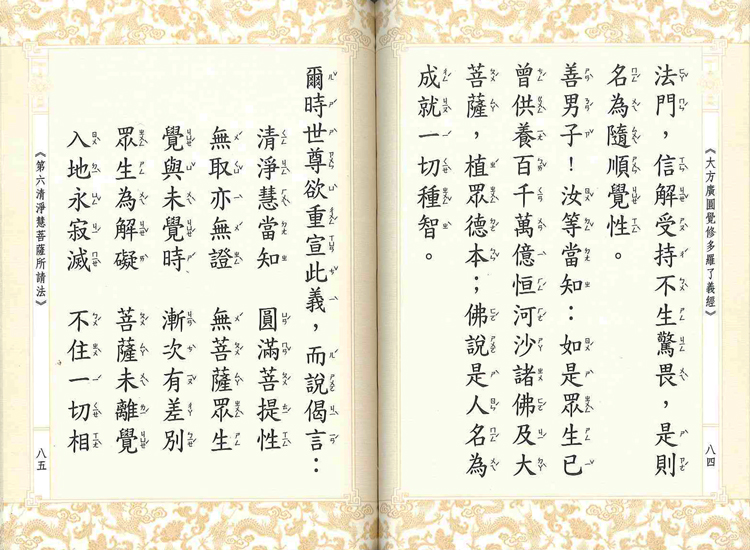 《大方廣圓覺修多羅了義經》
八四
法門，信解受持不生驚畏，是則
名為隨順覺性。
善男子！汝等當知：如是眾生已
曾供養百千萬億恒河沙諸佛及大
菩薩，植眾德本；佛說是人名為
成就一切種智。
爾時世尊欲重宣此義，而說偈言：
清淨慧當知　圓滿菩提性
無取亦無證　無菩薩眾生
覺與未覺時　漸次有差別
眾生為解礙　菩薩未離覺
入地永寂滅　不住一切相
《第六清淨慧菩薩所請法》
八五